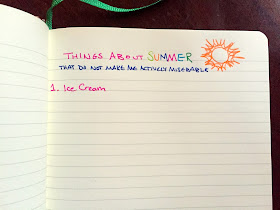 THINGS ABOUT SUMMER
THAT DO NOT MAKE ME ACTIVELY MISERABLE
1. Ice Cream